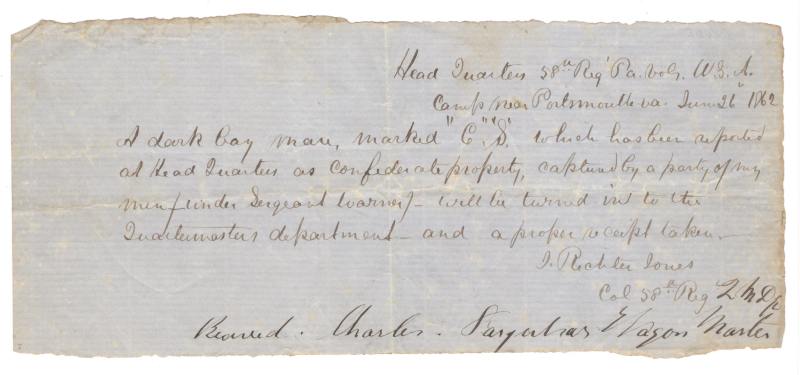 Head Quarters 58th Reg' Pa. Vols. U.S.A.
Camp near Portsmouth va. June 26" 1862
A dark bay mare, marked "C" "S" which has been reported
at Head Quarters as confederate property, captured by a party of my
men (under Sergeant Warner) - will be turned in to the
Quartermasters department - and a proper receipt taken. -
J. Richter Jones
Col 58th Reg
Q M Dp
Received. Charles. Wagon Master